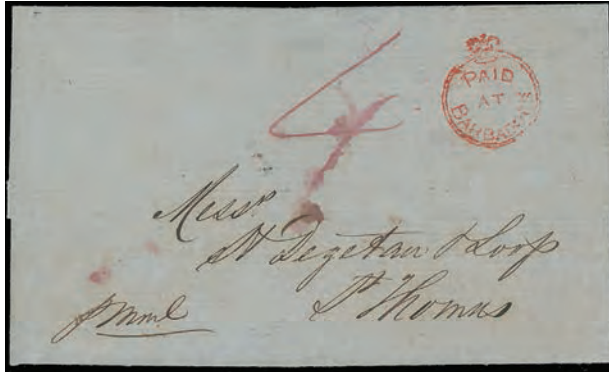 PAID
AT
BARBADOES
4
Messrs
Degetau & Loop
St Thomas